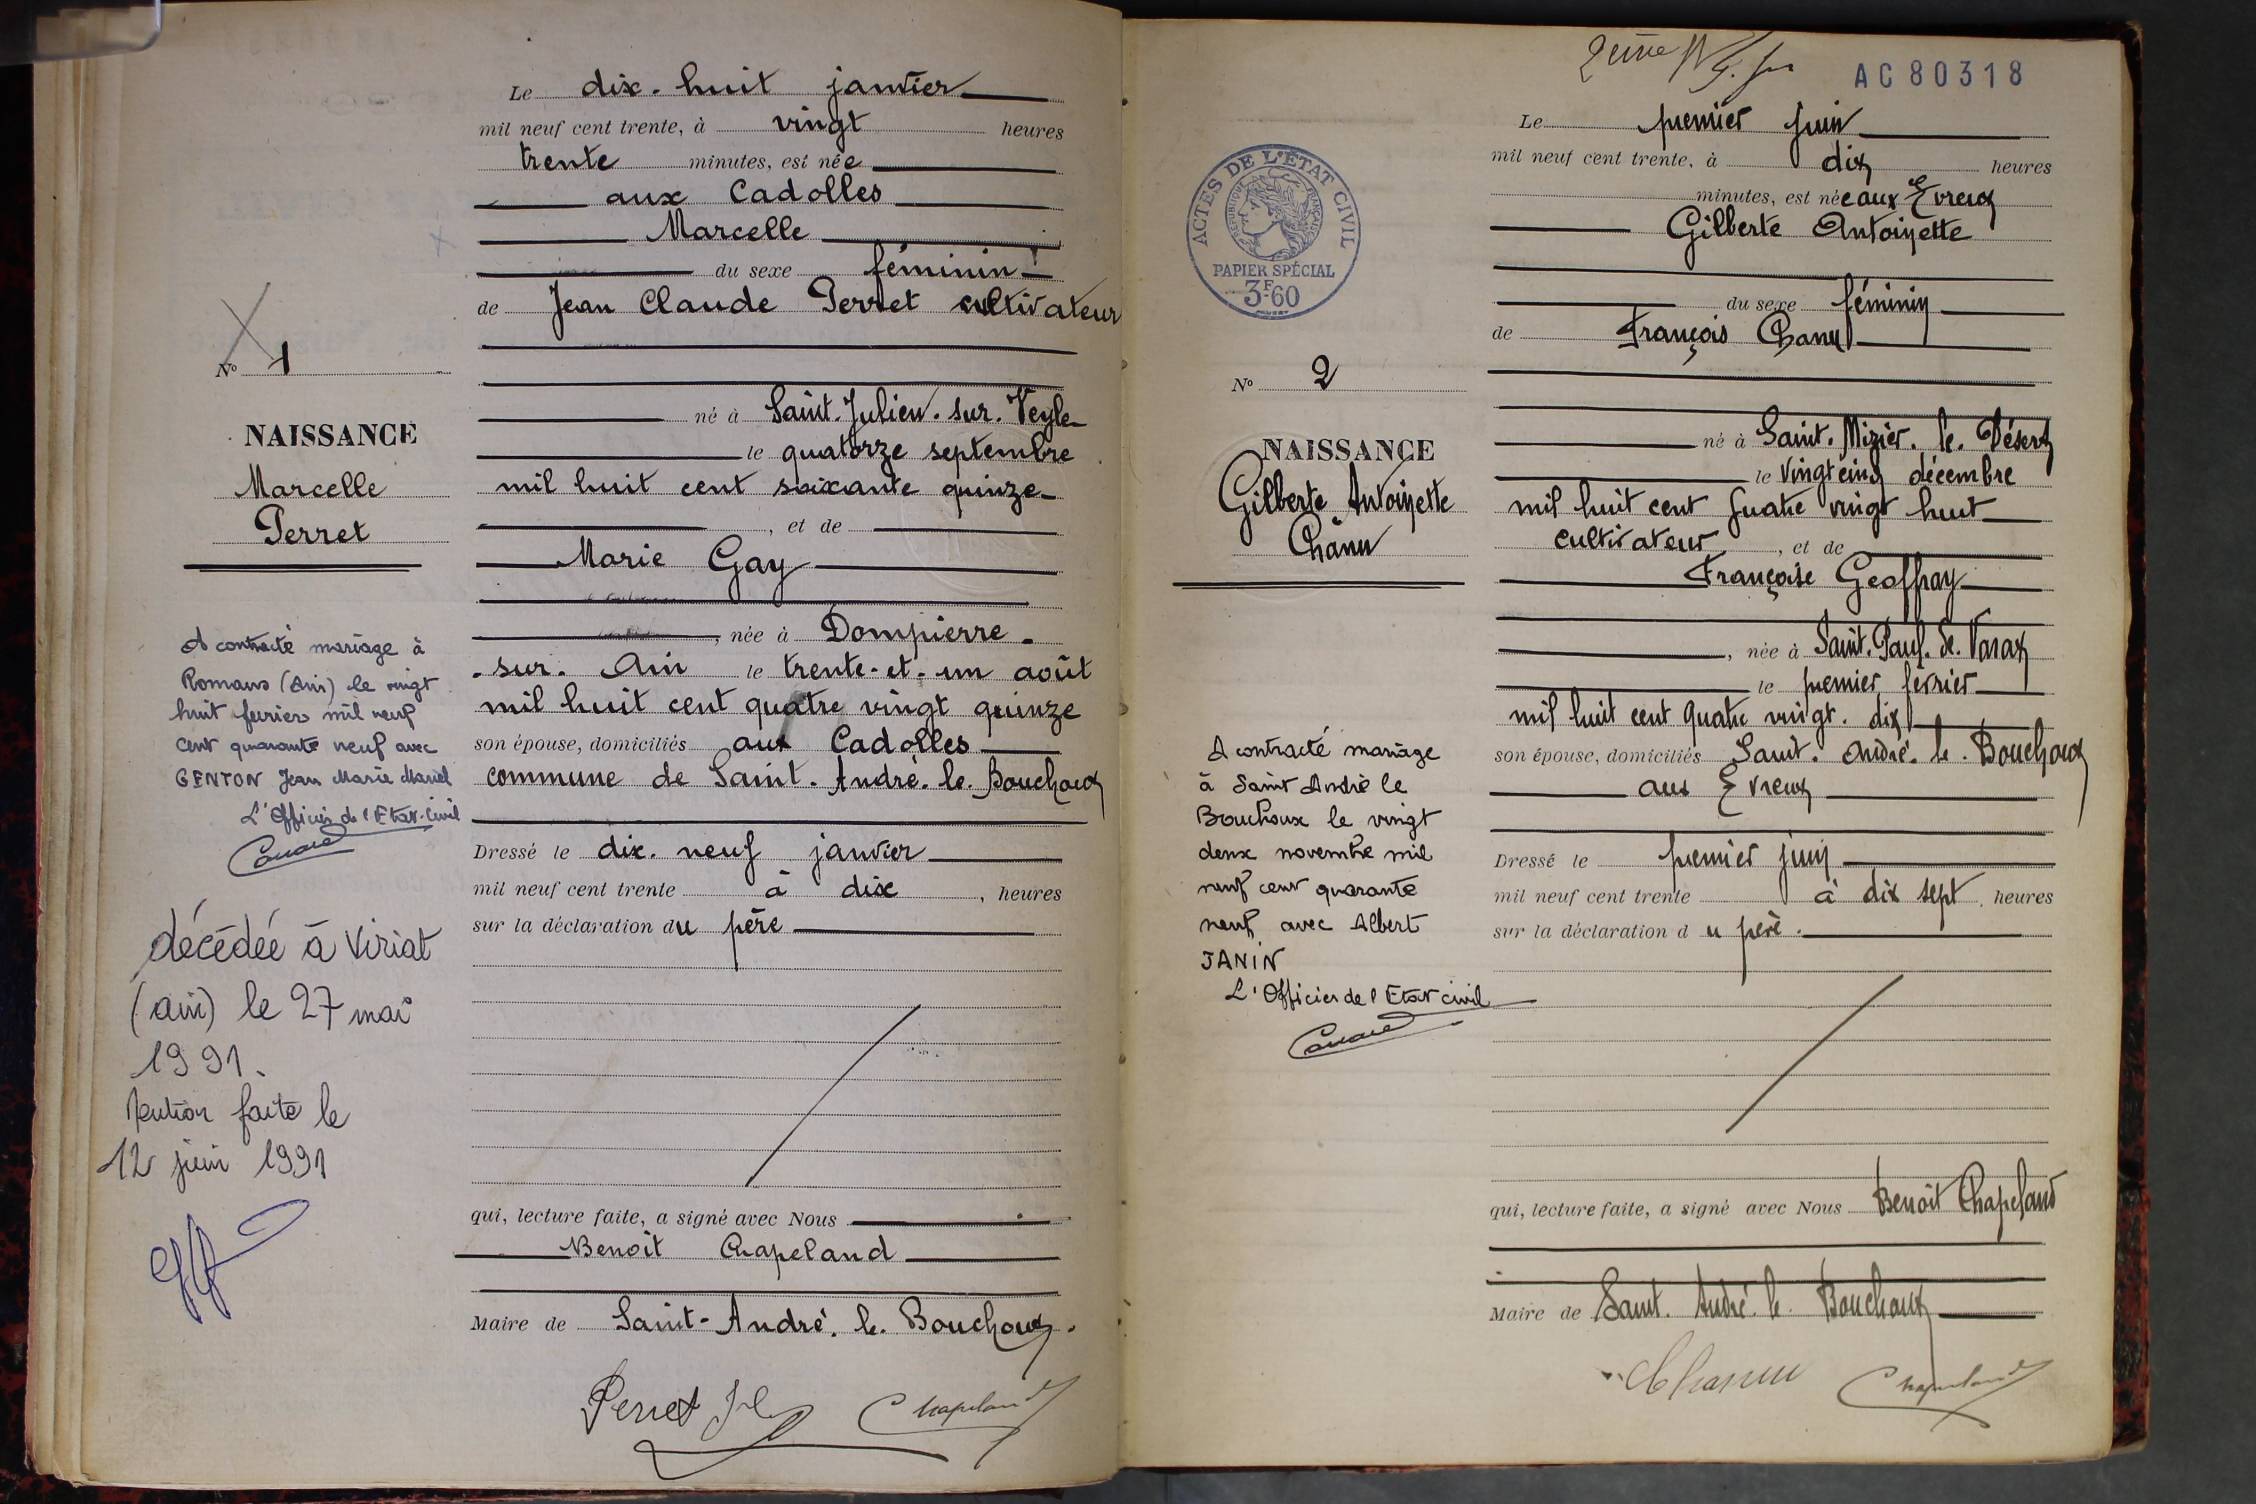 Le dix-huit janvier
mil neuf cent trente, à vingt heures
trente minutes, est née
aux Cadolles
Marcelle
du sexe féminin
de Jean Claude Perret cultivateur
né à Saint-Julien-sur-Veyle
le quatorze septembre
mil huit cent soixante quinze
, et de
Marie Gay
, née à Dompierre-
-sur-Ain le trente-et-un août
mil huit cent quatre vingt quinze
son épouse, domiciliés aux Cadolles
commune de Saint-André-le-Bouchoux
Dressé le dix-neuf janvier
mil neuf cent trente à dix, heures
sur la déclaration du père
qui, lecture faite, a signé avec Nous
Benoit Chapeland
Maire de Saint-André-le-Bouchoux.
Perret
Chapeland
No 1
NAISSANCE
Marcelle
Perret
A contracté mariage à
Romans (Ain) le vingt
huit février mil neuf
cent quarante neuf avec
GENTON Jean Marie Marcel
L'Officier de l'Etat-Civil
décédée à Viriat
(ain) le 27 mai
1991.
Mention faite le
12 juin 1991
AC80318
ACTES DE L'ÉTAT CIVIL
RÉPUBLIQUE FRANÇAISE
PAPIER SPÉCIAL
3F60
Le premier juin
mil neuf cent trente, à dix heures
minutes, est née aux Evreux
Gilberte Antoinette
du sexe féminin
de François Chanu
né à Saint-Nizier-le-Désert
le vingt cinq décembre
mil huit cent quatre vingt huit
cultivateur, et de
Françoise Geoffray
, née à Saint-Paul-de-Varax
le premier février
mil huit cent quatre vingt-dix
son épouse, domiciliés Saint-André-le-Bouchoux
aux Evreux
Dressé le premier juin
mil neuf cent trente à dix sept, heures
sur la déclaration du père.
qui, lecture faite, a signé avec Nous Benoit Chapeland
Maire de Saint-André-le-Bouchoux
Chanu
Chapeland
No 2
NAISSANCE
Gilberte Antoinette
Chanu
A contracté mariage
à Saint André le
Bouchoux le vingt
deux novembre mil
neuf cent quarante
neuf avec Albert
JANIN
L'Officier de l'Etat civil